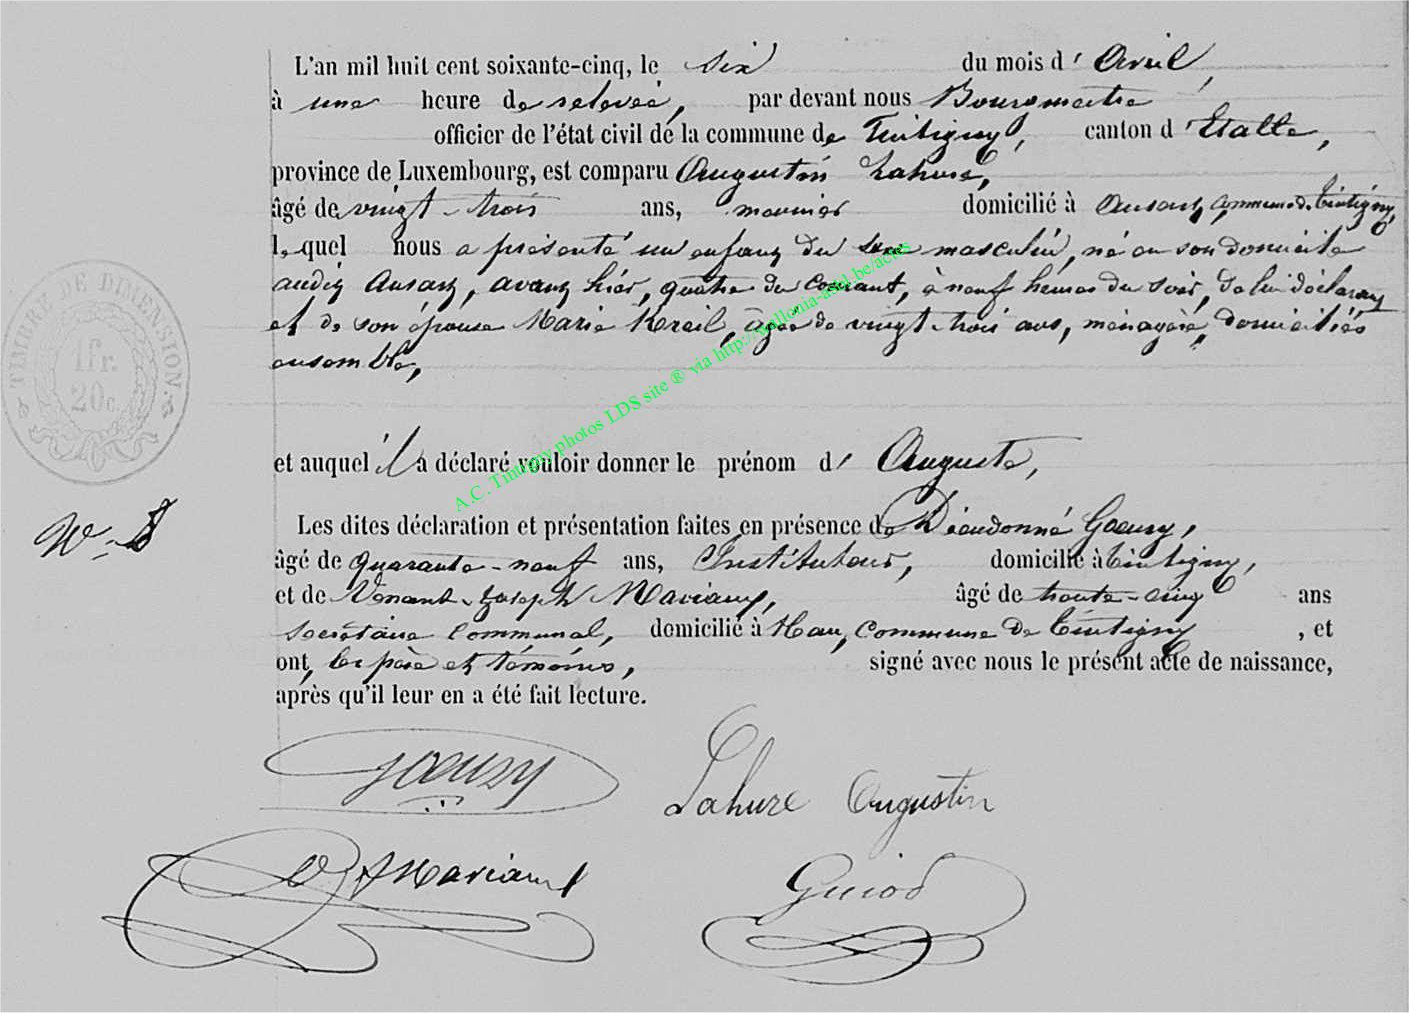 L'an mil huit cent soixante-cinq, le six du mois d'Avril,
à une heure de relevée, par devant nous Bourgmestre
officier de l'état civil de la commune de Tintigny, canton d'Etalle,
province de Luxembourg, est comparu Augustin Lahure,
âgé de vingt-trois ans, meunier domicilié à Ansart, commune de Tintigny,
lequel nous a présenté un enfant du sexe masculin, né en son domicile
audit Ansart, avant hier, quatre du courant, à neuf heures du soir, de lui déclarant
et de son épouse Marie Kreil, âgée de vingt-trois ans, ménagère, domiciliés
ensemble,
TIMBRE DE DIMENSION.
1fr.
20c.
et auquel il a déclaré vouloir donner le prénom d'Auguste,
Les dites déclaration et présentation faites en présence de Dieudonné Goeury,
âgé de quarante-neuf ans, Instituteur, domicilié à Tintigny,
et de Venant-Joseph Mariaux, âgé de trente-cinq ans
Secrétaire Communal, domicilié à Han, commune de Tintigny, et
ont, les père et témoins, signé avec nous le présent acte de naissance,
après qu'il leur en a été fait lecture.
Goeury
Lahure Augustin
V J Mariaux
Guiod
A.C. Tintigny photos LDS site ® via http://wallonia-asbl.be/actes